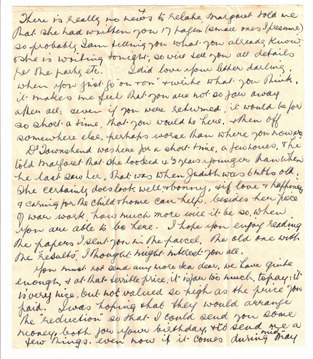 There is really no news to relate, Margaret told me
that she had written you 17 pages (small ones I presume)
so probably I am telling you what you already know
& she is writing tonight, so will tell you all details
re the party etc. I did love your letter darling,
when you just go on & on & write what you think,
it makes me feel that you are not so far away
after all, even if you were returned, it would be for
so short a time, that you would be here, & then off
somewhere else, perhaps worse than where you now are
Dr Townshend was here for a short time, a few hours, & he
told Margaret that she looked 5 years younger than when
he last saw her, that was when Judith was 6 mths old.
She certainly does look well & bonny, & if love & happiness
& caring for the child & home can help, besides her piece
of war work, how much more will it be so, when
you are able to be here. I hope you enjoy reading
the papers I sent you in the parcel, the old one with
the "results", I thought might interest you all.
You must not send any more tea dear, we have quite
enough, & at that terrible price, it is far too much, to pay, it
is very nice, but not valued so high as the price you
paid. I was hoping that they would arrange
the reduction so that I could send you some
money, both for your birthday, & to send me a
few things. even now if it comes during May